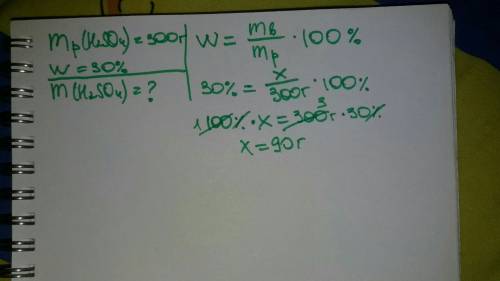 mр(H₂SO₄)=300г
w=30%
m(H₂SO₄)=?
W = mв/mр · 100%
30% = x/300г · 100%
1 100% · x = 300г 3 · 30%
x=90г